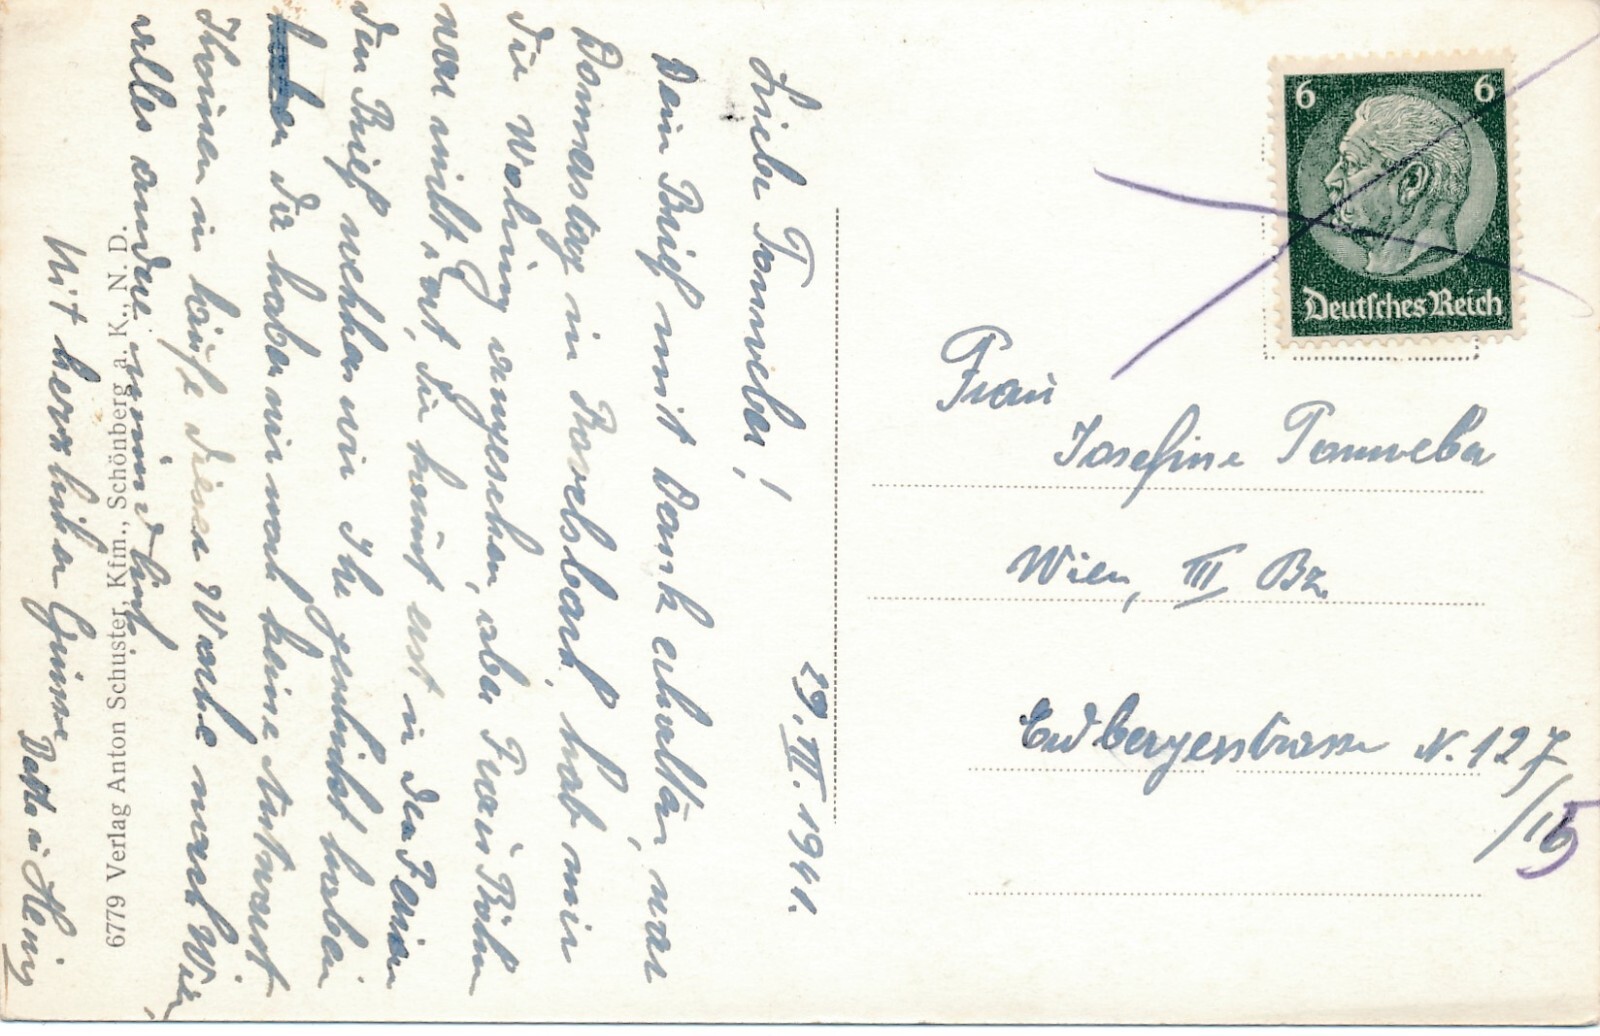 29. VII. 1941.
Liebe Tonnweber!
Dein Brief mit Dank erhalten, war
Donnerstag in Pavelsbach, hab mir
die Wohnung angesehen, aber Frau Böhm
war nicht dort, die kommt erst in den Ferien
den Brief welchen wir Ihr geschickt haben
die haben wir noch keine Antwort
Ich komme in diese Woche nach Wien,
alles andere mündlich
Mit herzlichen Grüsse
6779 Verlag Anton Schuster, Kfm., Schönberg a. K., N. D.
6 6
Deutsches Reich
Frau
Josefine Tonnweber
Wien, III Bz
Erdbergerstrasse N. 127
/15